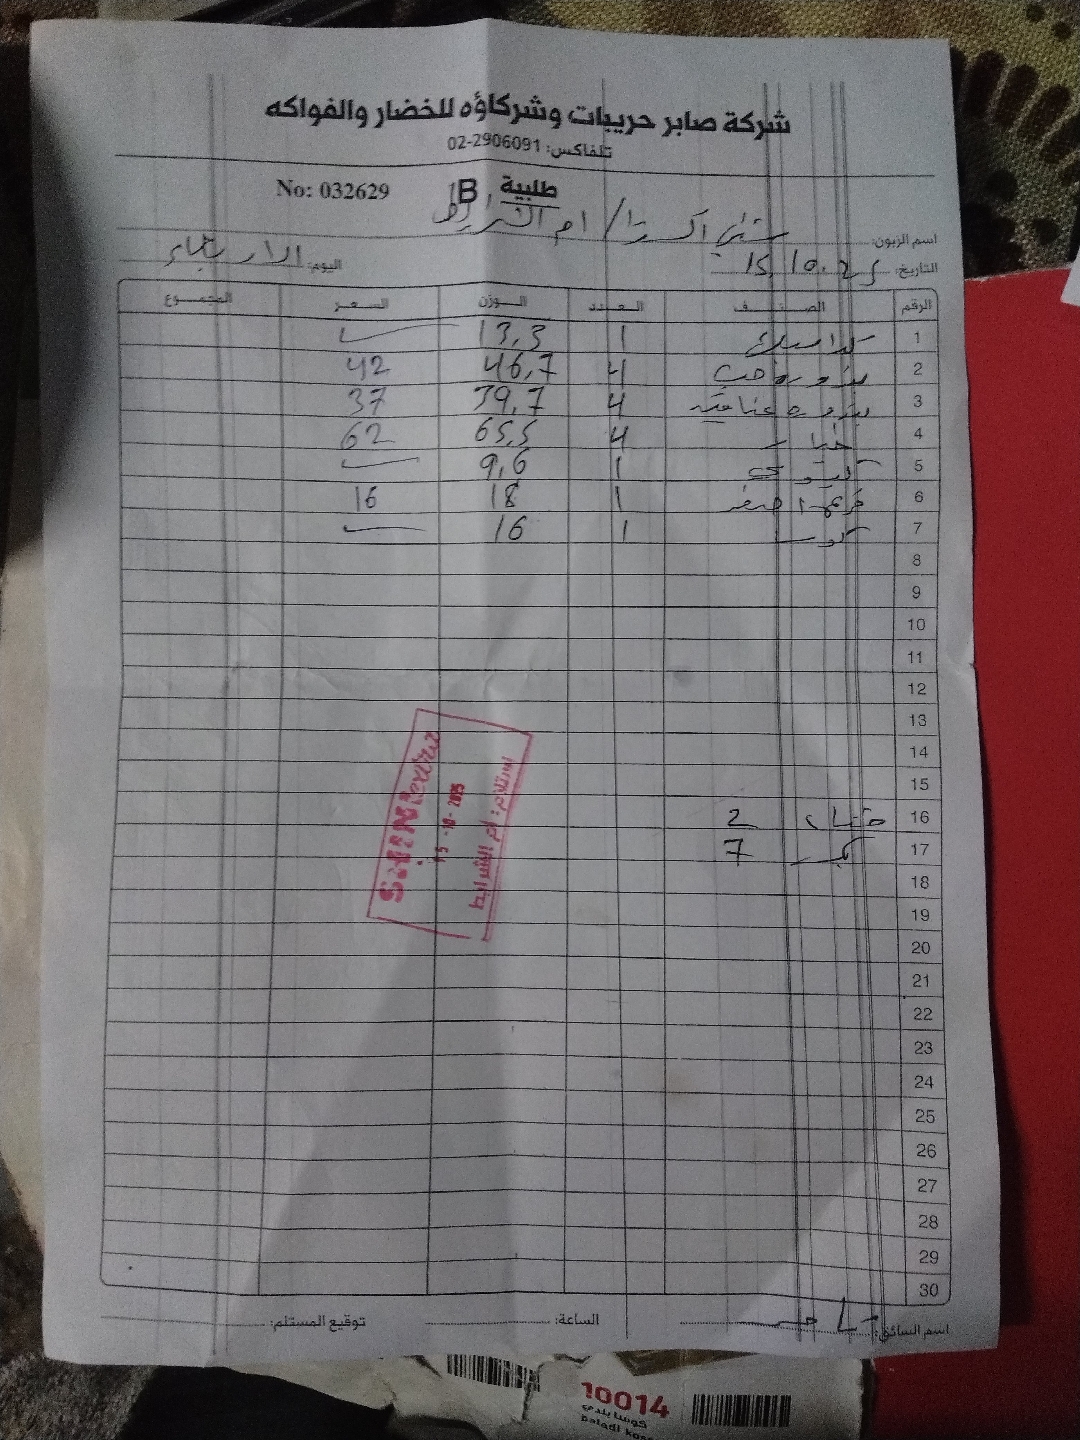 شركة صابر حريبات وشركاؤه للخضار والفواكه
تلفاكس: 02-2906091
No: 032629 B طلبية
اسم الزبون: / ام الشرايط
التاريخ: 15.10.25 اليوم: الاربعاء
الرقم الصنف العدد الوزن السعر المجموع
1 1 13,3
2 بندوره حب 4 46,7 42
3 بندوره عناقيد 4 39,7 37
4 خيار 4 65,5 62
5 1 9,6
6 اصفر 1 18 16
7 1 16
8
9
10
11
12
13
14
15
16 2
17 7
18
19
20
21
22
23
24
25
26
27
28
29
30
15-10-2025
استلام: ام الشرايط
اسم السائق: الساعة: توقيع المستلم:
10014
كوسا بلدي